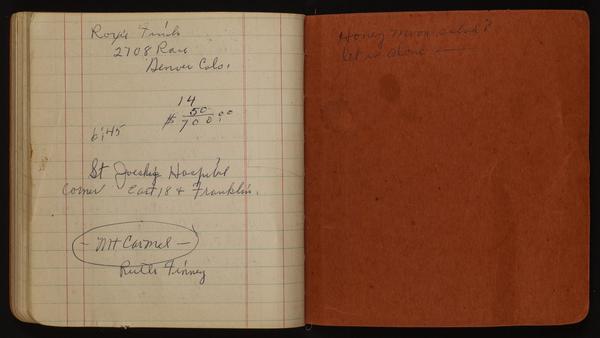 2708 Race
Denver Colo.
14
50
$ 700.00
6:45
St Joeshig Hospital
Corner East 18 & Franklin.
- Mt Carmel -
Ruth Finney
Honey Moon salad?
let us alone —